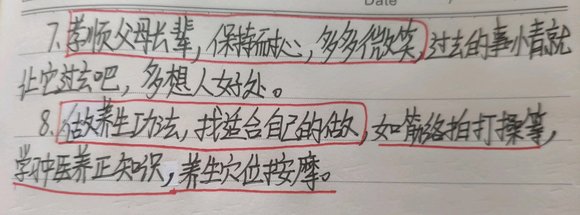 Date
7.孝顺父母长辈,保持耐心,多多微笑,过去的事情就
让它过去吧,多想人好处。
8.做养生功法,找适合自己的做,如筋络拍打操等,
学习中医养正知识,养生穴位按摩。